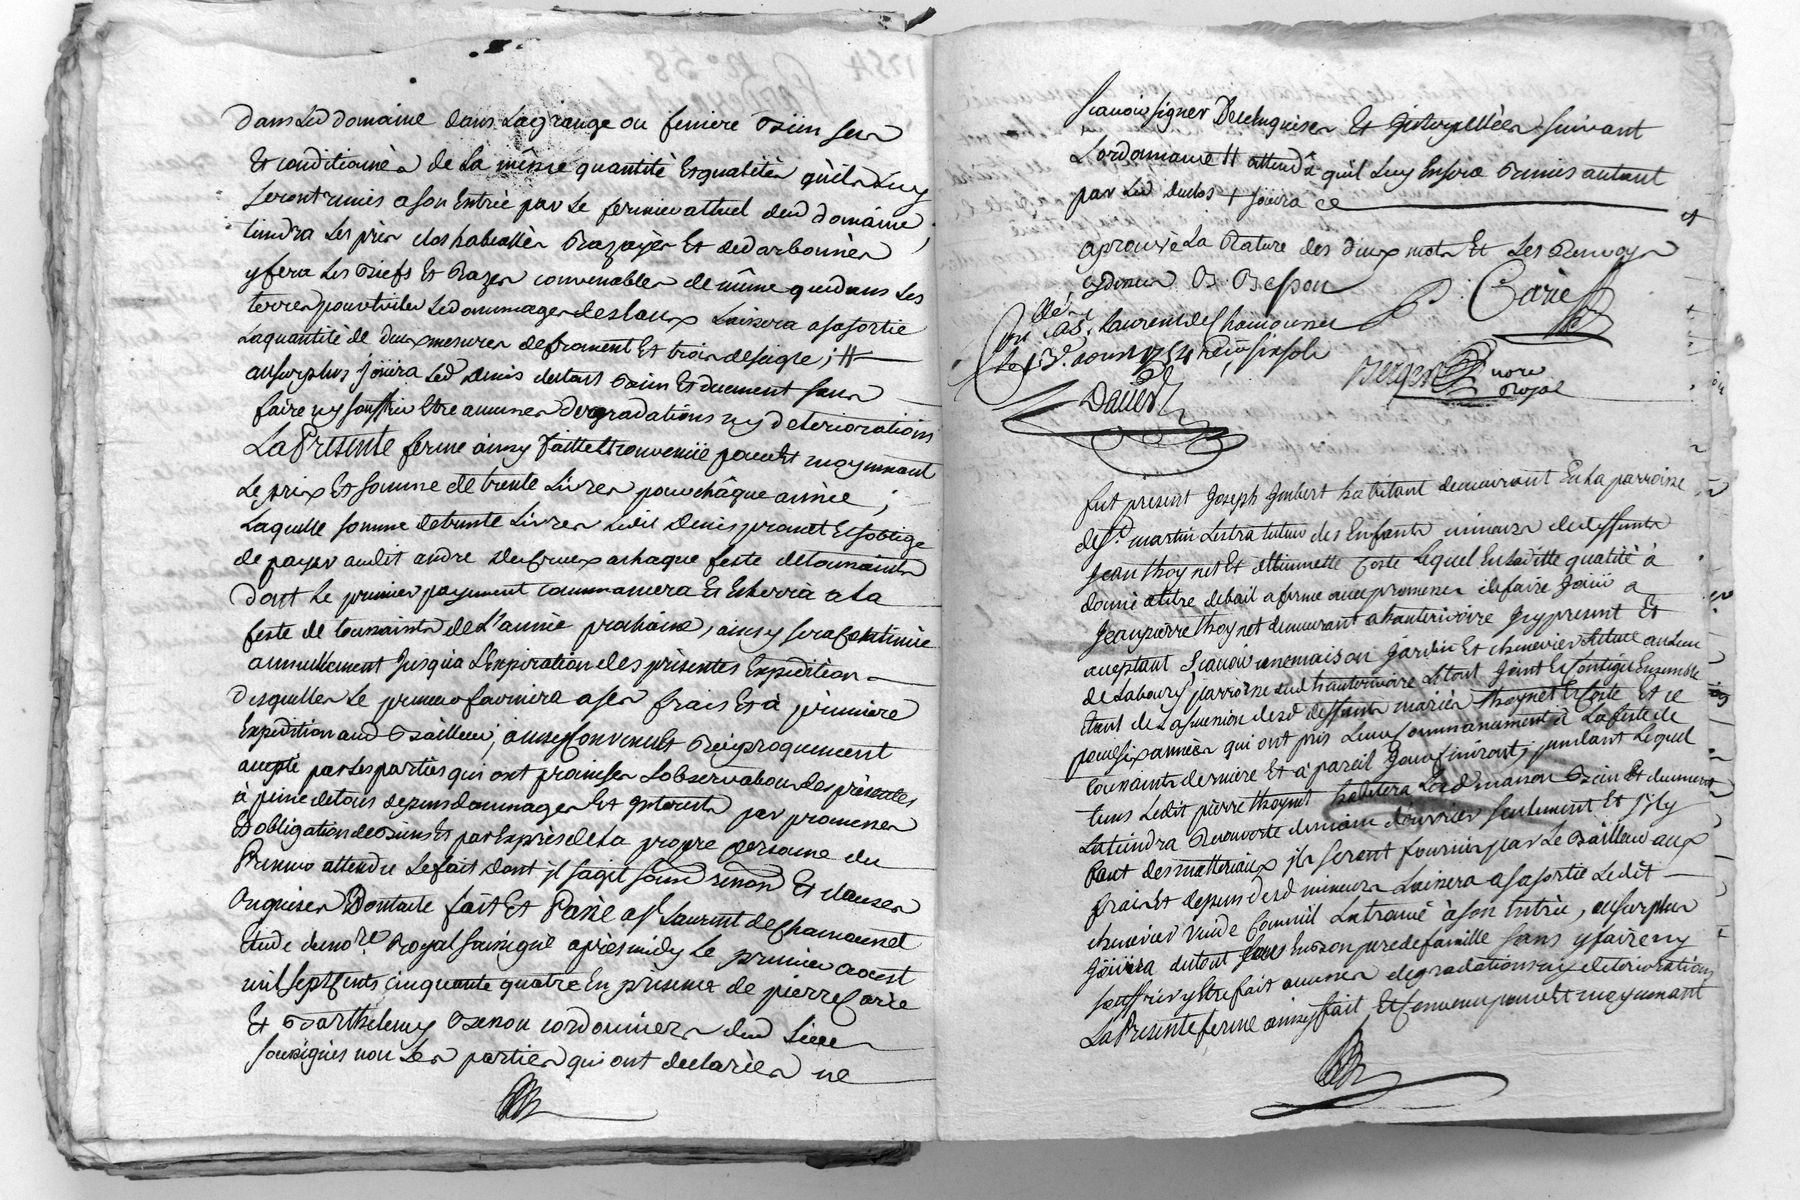 dans led domaine dans la grange ou feniere bien sec
et conditionnés de la même quantité et qualités qu'ils luy
seront remis a son entrée par le fermier attuel dud domaine,
tiendra les pres clos et
y fera les biefs et razes convenables de même que dans les
terres pour eviter le dommages des eaux laissera a sa sortie
la quantité de deux mesures de froment et trois de seigle, #
au surplus joüira led Denis du tout bien et duement sans
faire ny souffrir etre aucunes degradations ny deteriorations
La Presente ferme ainsy faitte et convenüe pour et moyennant
le prix et somme de trente livres pour châque année;
laquelle somme de trente livres ledit Denis promet et s'oblige
de payer audit andré a chaque feste de toussaints
dont le premier payement commancera et echerra a la
feste de toussaints de l'année prochaine, ainsy sera continué
annuellement jusqu'a l'expiration des présentes expedition
desquelles le preneur fournira a ses frais et à première
expedition aud bailleur; ainsy convenu et reciproquement
accepté par les parties qui ont promis l'observation des présentes
à peine de tous depens dommages et interests par promesses
et obligation de biens et par exprès de la propre personne du
preneur attendu le fait dont il sagit renon et clauses
requises Dont acte fait et Passé a St Laurent de Chamousset
etude du nore Royal soussigné après midy le premier aoust
mil sept cents cinquante quatre en présence de pierre Carie
et Barthelemy Besson cordonniers dud lieu
soussignés non les parties qui ont declarées ne
scavoir signer De ce enquises et interpellées suivant
L'ordonnance # attendu qu'il luy en sera remis autant
par led + joüira ce
aprouvé la rature des deux mots et les renvoys
cy dessus B. Besson P. Carie
a St. Laurent de Chamousset
le 13e. aoust 1754 reçu six sols
nore
Royal
Fut present Joseph Joubert habitant demeurant en la parroisse
de St. martin Lestra tuteur des enfants mineurs de deffunts
Jean thoynet et ettiennette Coste lequel en la ditte qualité à
donné a titre de bail a ferme avec promesses de faire Jouir a
Jean pierre thoynet demeurant a hauterivoire icy present et
acceptant, scavoir une maison jardin et chenevier situé au lieu
de parroisse dud hauterivoire le tout joint et contigu ensemble
etant de la succession desd deffunts mariés thoynet et Coste et ce
pour six années qui ont pris leur commancement à la feste de
toussaints derniere et à pareil jour finiront, pendant lequel
tems ledit pierre thoynet habitera lad maison bien et duement
la tiendra recouverte de main d'ouvrier seulement et s'il y
faut des matteriaux ils seront fournis par le bailleur aux
frais et depens desd mineurs laissera a sa sortie ledit
chenevier vuide comme il la trouvé à son entrée, au surplus
joüira du tout en bon pere de famille sans y faire ny
souffrir y etre fait aucunes degradations ny deteriorations
La Presente ferme ainsy fait et convenu pour et moyennant